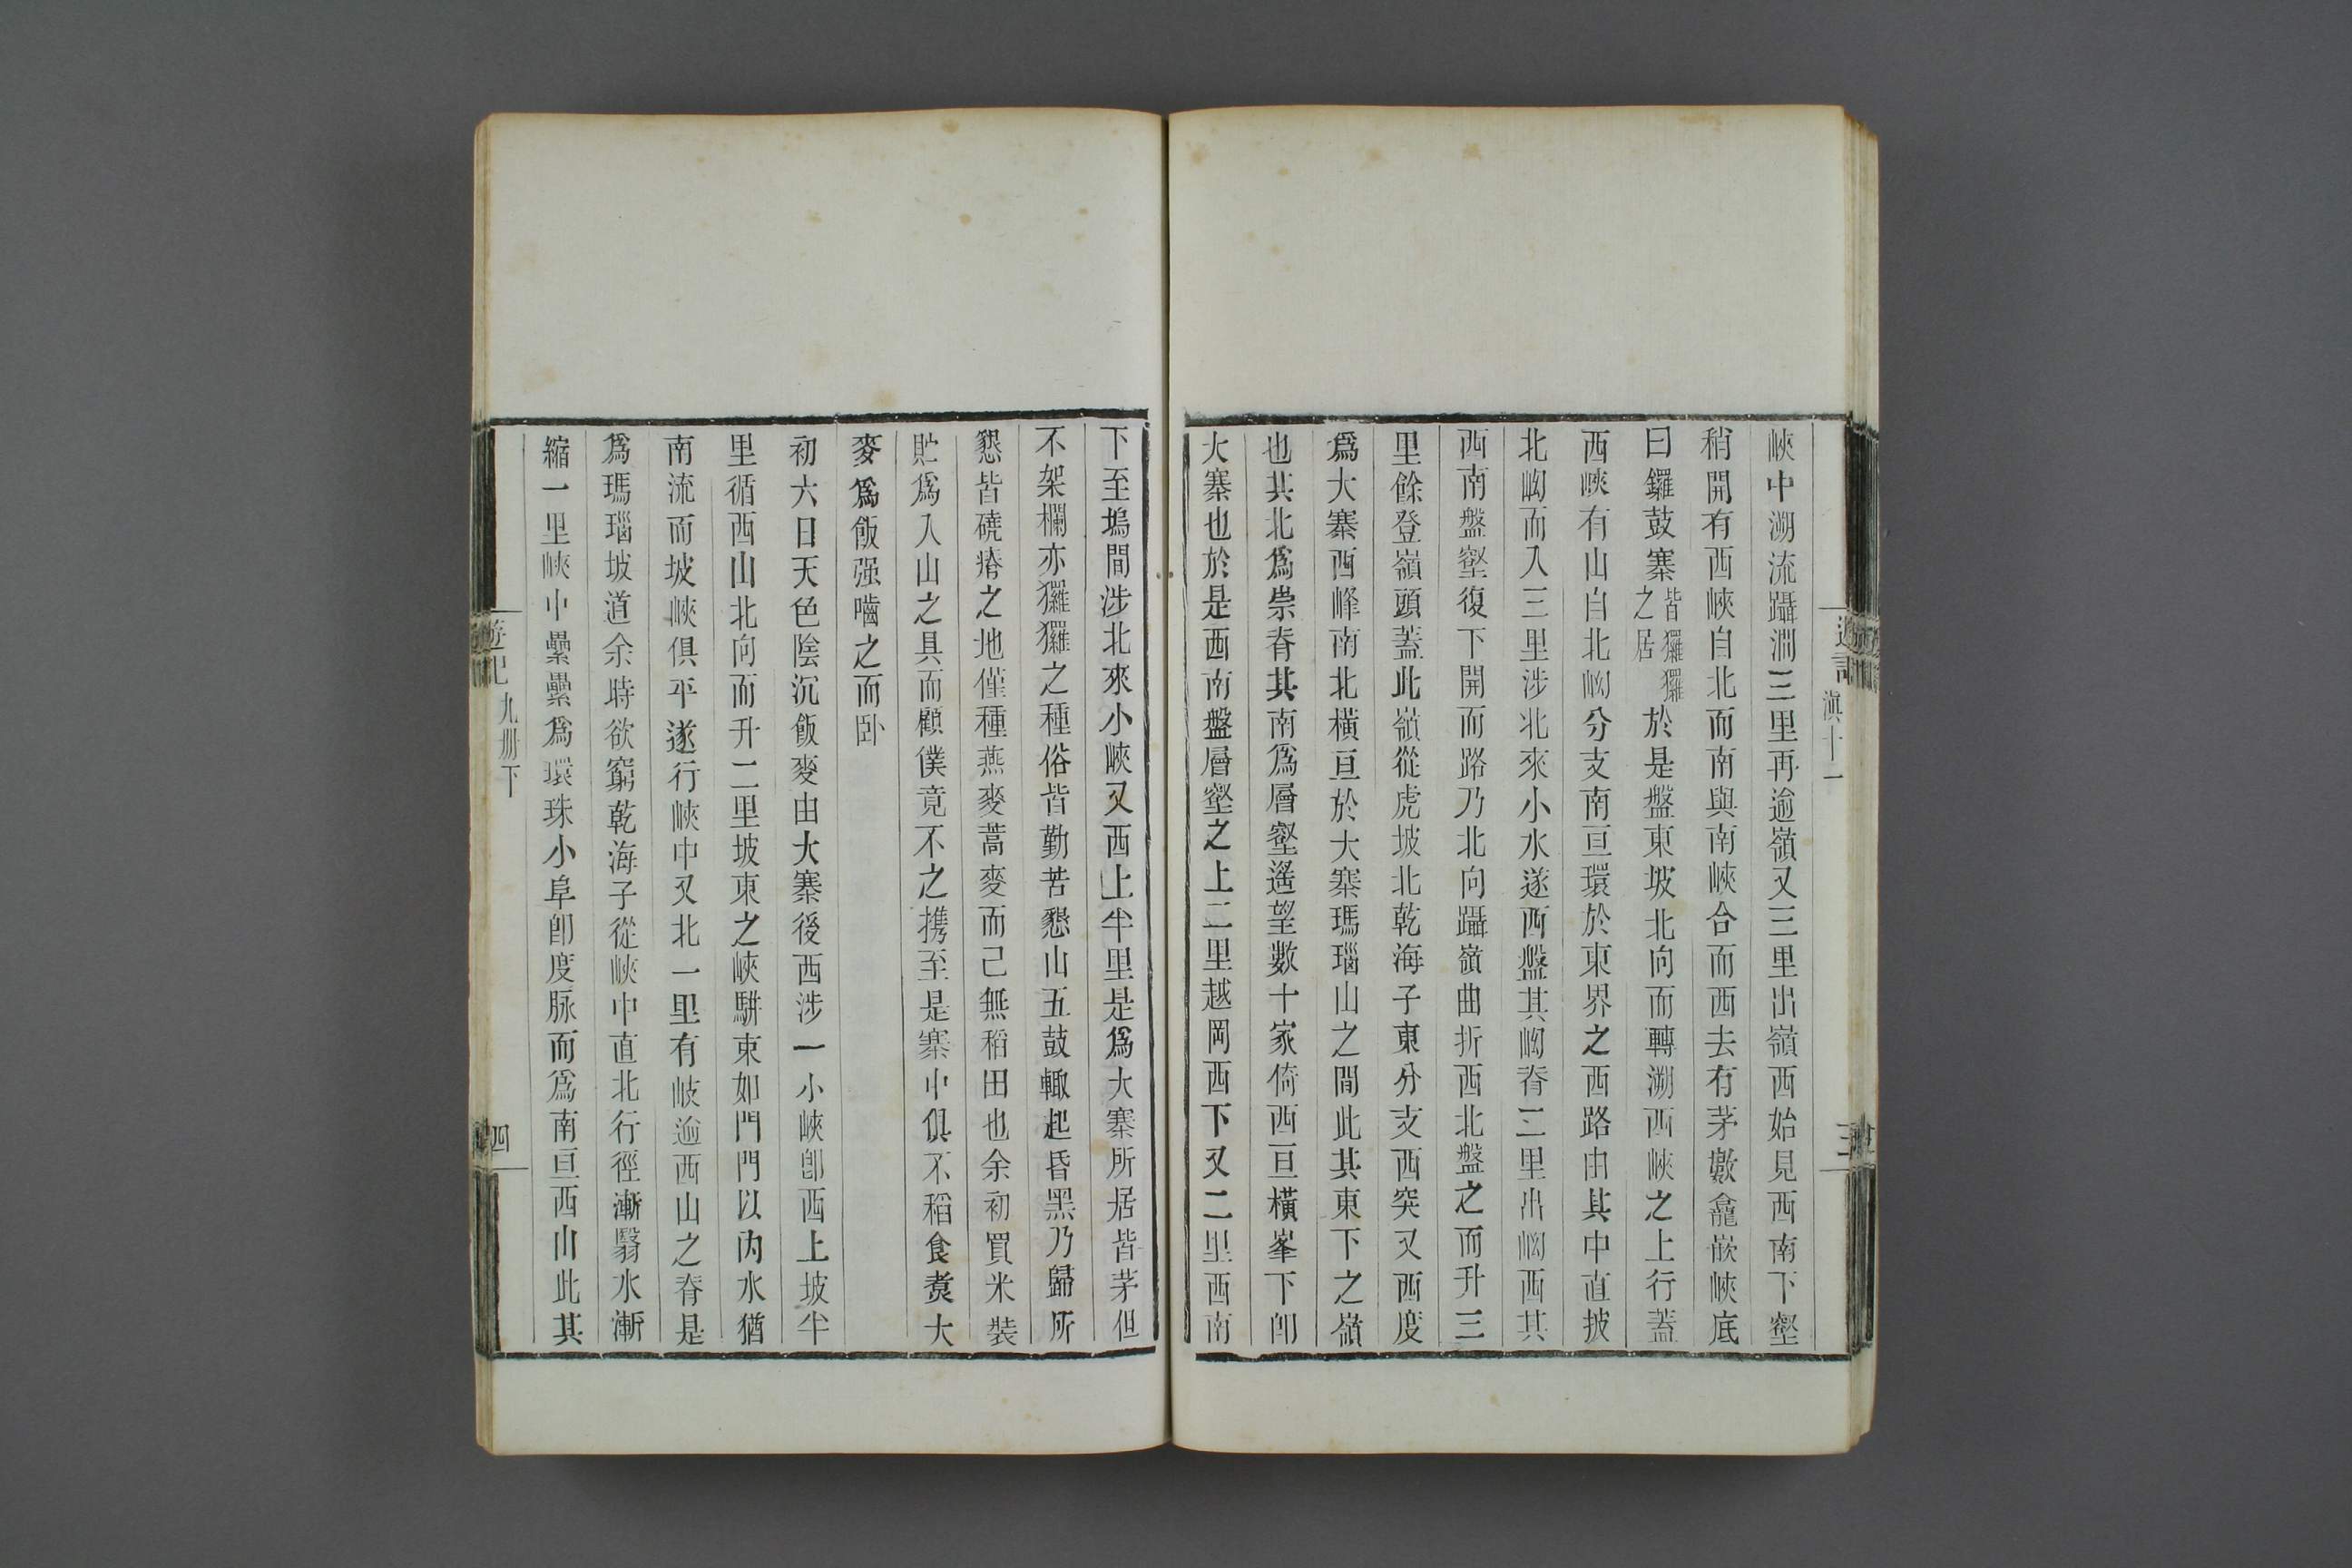 遊記 滇十一
三
峽中溯流躡澗三里再逾嶺又三里出嶺西始見西南下壑
稍開有西峽自北而南與南峽合而西去有茅數龕嵌峽底
曰鑼鼓寨皆玀玀之居於是盤東坡北向而轉溯西峽之上行蓋
西峽有山自北㘭分支南亘環於東界之西路由其中直披
北㘭而入三里涉北來小水遂西盤其㘭脊二里出㘭西其
西南盤壑復下開而路乃北向躡嶺曲折西北盤之而升三
里餘登嶺頭蓋此嶺從虎坡北乾海子東分支西突又西度
爲大寨西峰南北橫亘於大寨瑪瑙山之間此其東下之嶺
也其北爲崇脊其南爲層壑遙望數十家倚西亘橫峯下卽
大寨也於是西南盤層壑之上二里越岡西下又二里西南
下至塢間涉北來小峽又西上半里是爲大寨所居皆茅但
不架欄亦玀玀之種俗皆勤苦懇山五鼓輙起昏黑乃歸所
懇皆磽瘠之地僅種燕麥蒿麥而已無稻田也余初買米裝
貯爲入山之具而顧僕竟不之携至是寨中俱不稻食煑大
麥爲飯强嚙之而卧
初六日天色陰沉飯麥由大寨後西涉一小峽卽西上坡半
里循西山北向而升二里坡東之峽駢束如門門以內水猶
南流而坡峽俱平遂行峽中又北一里有岐逾西山之脊是
爲瑪瑙坡道余時欲窮乾海子從峽中直北行徑漸翳水漸
縮一里峽中纍纍爲環珠小阜卽度脉而爲南亘西山此其
遊記 九册下
四